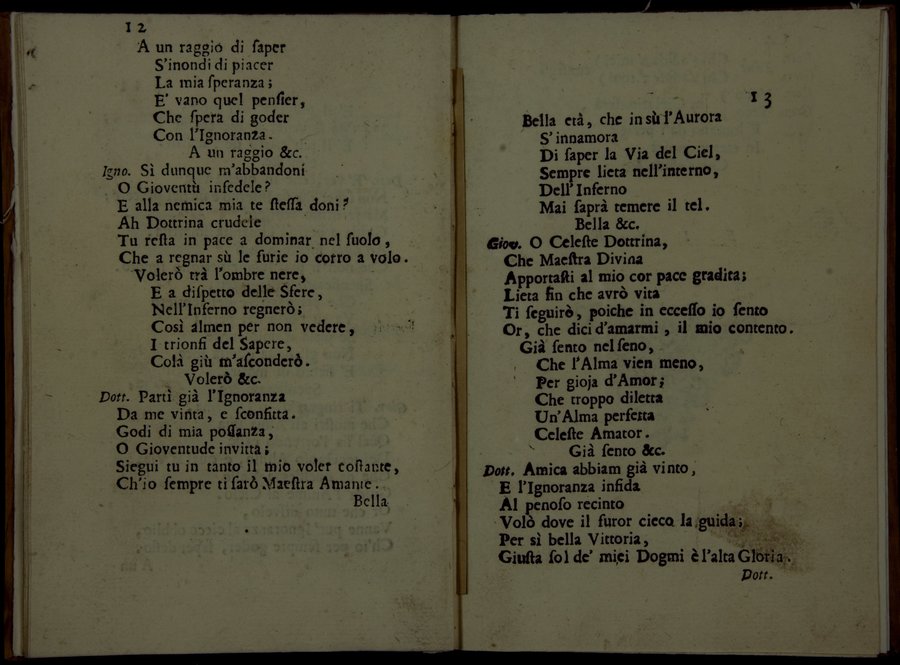 12
A un raggio di ſaper
S'inondi di piacer
La mia ſperanza;
E' vano quel penſier,
Che ſpera di goder
Con l'Ignoranza.
A un raggio &c.
Igno. Sì dunque m'abbandoni
O Gioventù infedele?
E alla nemica mia te ſteſſa doni?
Ah Dottrina crudele
Tu reſta in pace a dominar nel ſuolo,
Che a regnar sù le furie io corro a volo.
Volerò trà l'ombre nere,
E a diſpetto delle Sfere,
Nell'Inferno regnerò;
Così almen per non vedere,
I trionfi del Sapere,
Colà giù m'aſconderò.
Volerò &c.
Dott. Partì già l'Ignoranza
Da me vinta, e ſconfitta.
Godi di mia poſſanza,
O Gioventude invitta;
Siegui tu in tanto il mio voler coſtante,
Ch'io ſempre ti ſarò Maeſtra Amante.
Bella
13
Bella età, che in sù l'Aurora
S'innamora
Di ſaper la Via del Ciel,
Sempre lieta nell'interno,
Dell'Inferno
Mai ſaprà temere il tel.
Bella &c.
Giov. O Celeſte Dottrina,
Che Maeſtra Divina
Apportaſti al mio cor pace gradita;
Lieta fin che avrò vita
Ti ſeguirò, poiche in ecceſſo io ſento
Or, che dici d'amarmi, il mio contento.
Già ſento nel ſeno,
Che l'Alma vien meno,
Per gioja d'Amor;
Che troppo diletta
Un'Alma perfetta
Celeſte Amator.
Già ſento &c.
Dott. Amica abbiam già vinto,
E l'Ignoranza infida
Al penoſo recinto
Volò dove il furor cieco la guida;
Per sì bella Vittoria,
Giuſta ſol de' miei Dogmi è l'alta Gloria.
Dott.